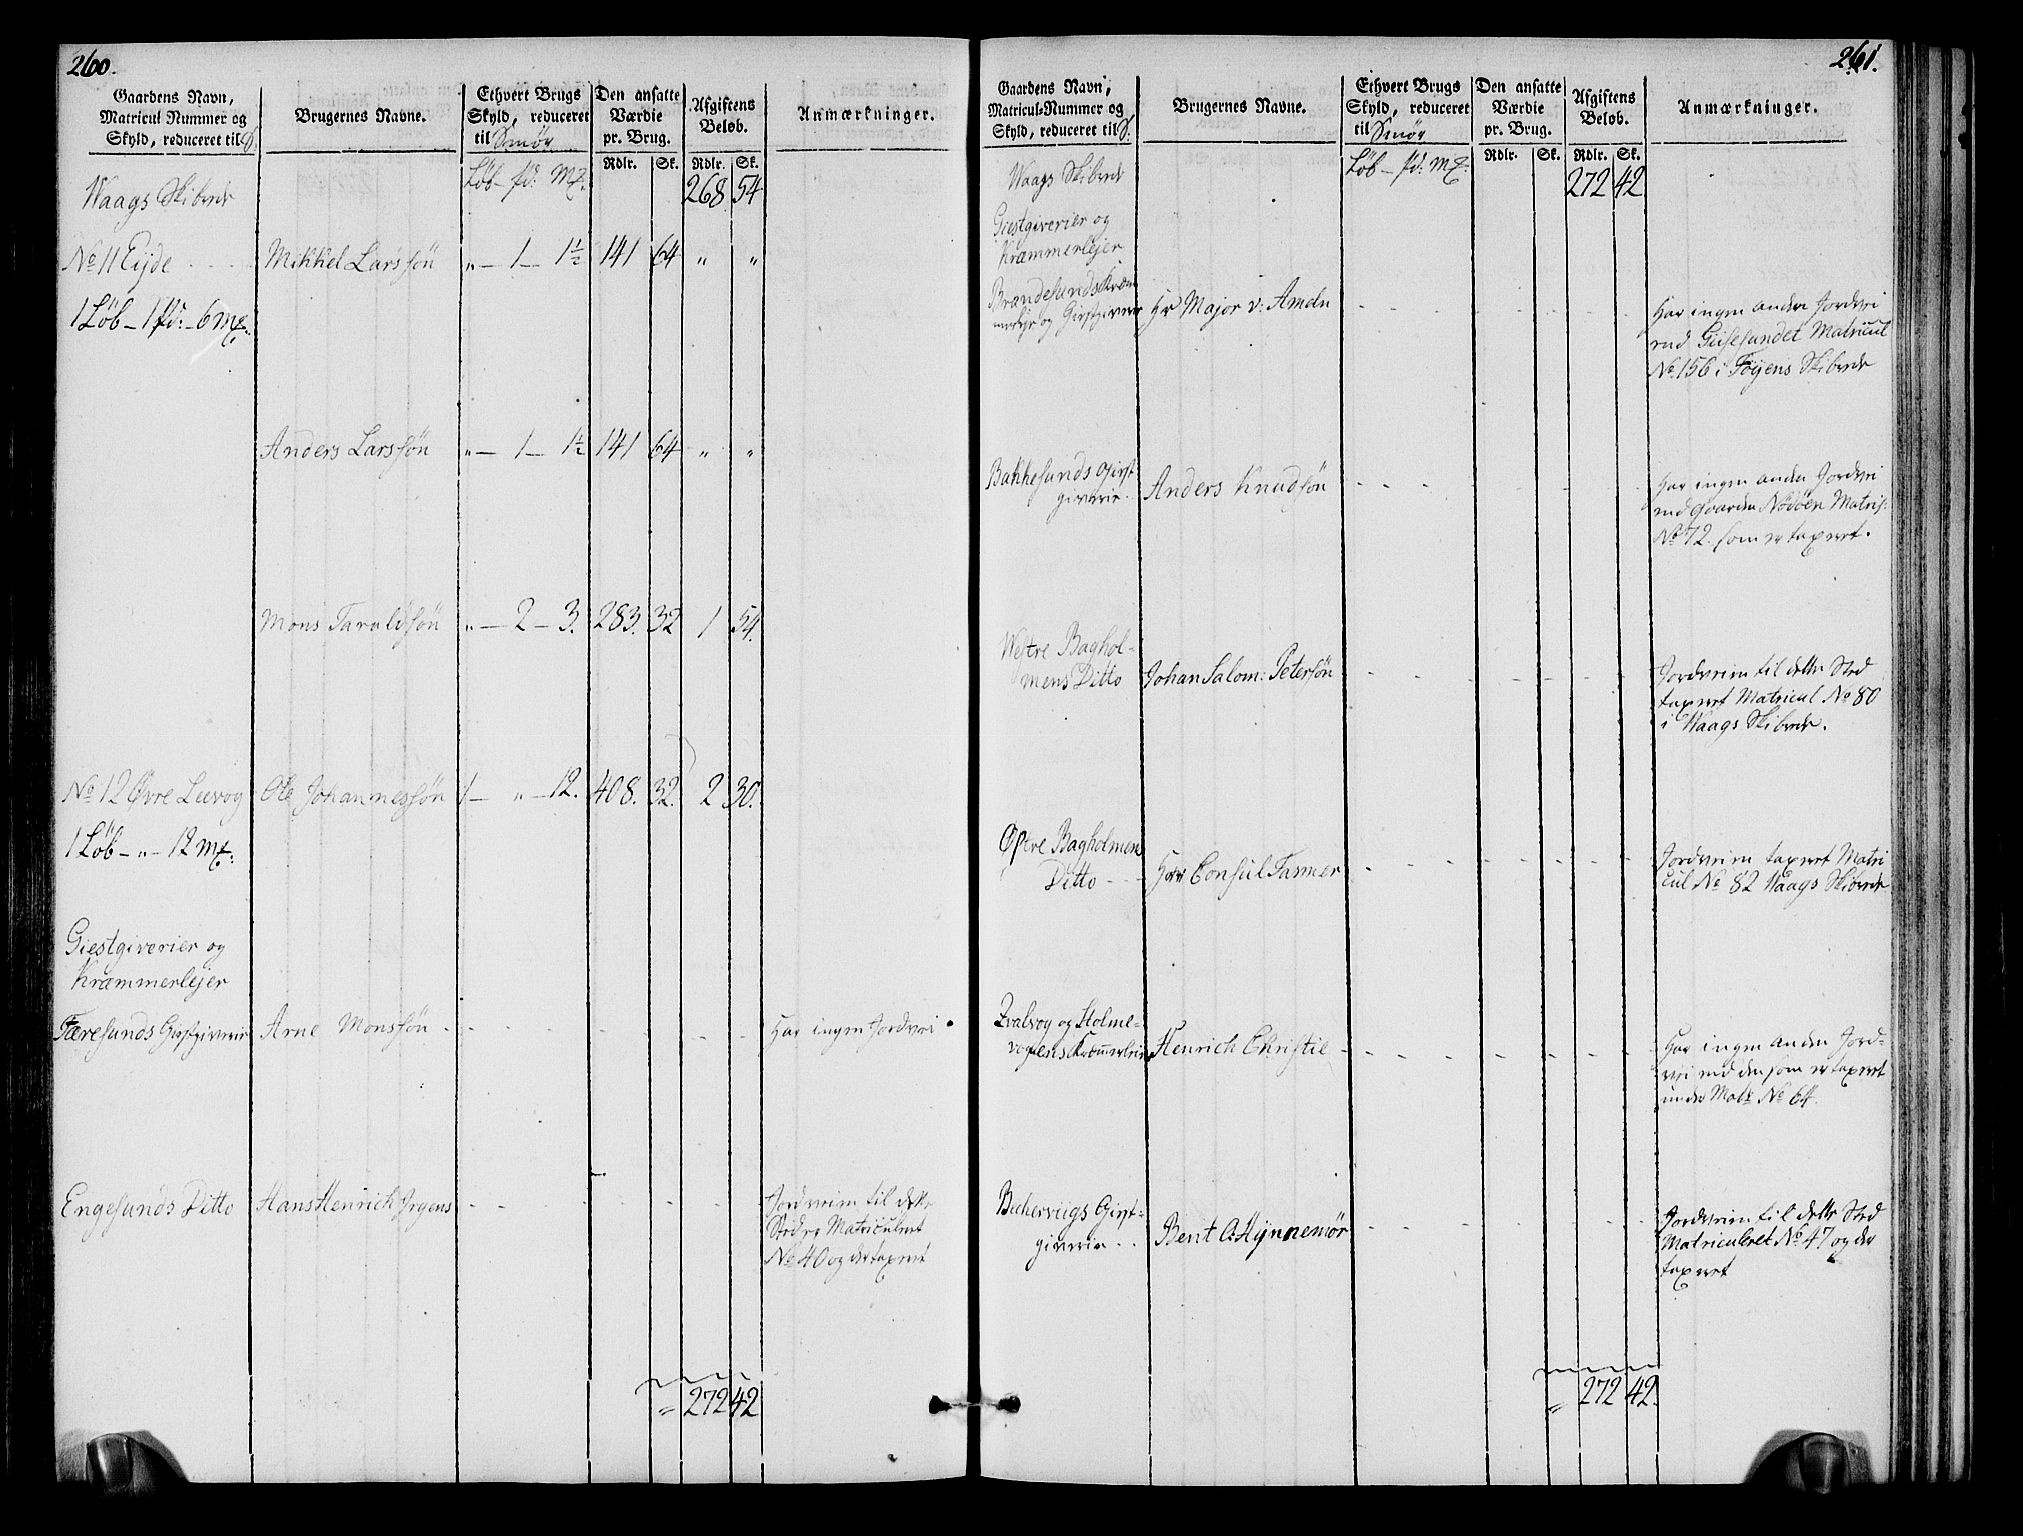 260.
Gaardens Navn,
Matricul Nummer og
Skyld, reduceret til S.
Brugernes Navne.
Ethvert Brugs
Skyld, reduceret
til Smör
Den ansatte
Værdie
pr. Brug.
Afgiftens
Beløb.
Anmærkninger.
Löb – pd: Mk:
Rdlr. Sk. Rdlr. Sk.
Waags Skibrede 268 54
No 11 Eyde Mikkel Larssön „ – 1 – 1½ 141 64 „ „
1 Löb – 1 pd: – 6 Mk:
Anders Larssön „ – 1 – 1½ 141 64 „ „
Mons Taraldsön „ – 2 – 3. 283. 32 1 54.
No 12 Øvre Leevog Ole Johannessön 1 – „ – 12. 408. 32. 2 30.
1 Löb – „ – 12 Mk:
Giestgiverier og
Kræmmerlejer
Færesunds Giestgiverie Arne Monssön - - - - - - Har ingen Jordvei.
Engesunds Ditto Hans Henrich Jrgens - - - - - - Jordveien til dette
Sted er Matriculeret
No 40 og der taxeret
„ 272 42
261.
Gaardens Navn,
Matricul-Nummer og
Skyld, reduceret til S.
Brugernes Navne.
Ethvert Brugs
Skyld, reduceret
til Smör
Den ansatte
Værdie
pr. Brug.
Afgiftens
Beløb.
Anmærkninger.
Löb – pd: Mk:
Rdlr. Sk. Rdlr. Sk.
Waags Skibrede 272 42
Giestgiverier og
Kræmmerlejer
Brandesunds Kræm
merlejr og Giestgiverie Hr Major v: Amdn - - - - - - Har ingen anden Jordvei
end Giisesundet Matricul
No 156 i Føyens Skibrede
Bakkesunds Giest
giverie. Anders Knudsön - - - - - - Har ingen anden Jordvei
end Gaarden Nödöen Matric:
No 72. som er taxeret.
Westre Baghol-
mens Ditto Johan Salom: Petersön - - - - - - Jordveien til dette Sted
taxeret Matricul No 80
i Waags Skibrede.
Øhre Bagholmens
Ditto - - Herr Consul Fasmer - - - - - - Jordveien taxeret Matri
cul No 82 Waags Skibrede
og Holme-
vogens Kræmerleie Henrich Christie - - - - - - Har ingen anden Jord-
vei end den som er taxeret
under Matr No 64.
Bechervigs Giest-
giverie . . Bent C. Hynnemör - - - - - - Jordveien til dette Sted
Matriculeret No 47 og der
taxeret
„ 272 42.